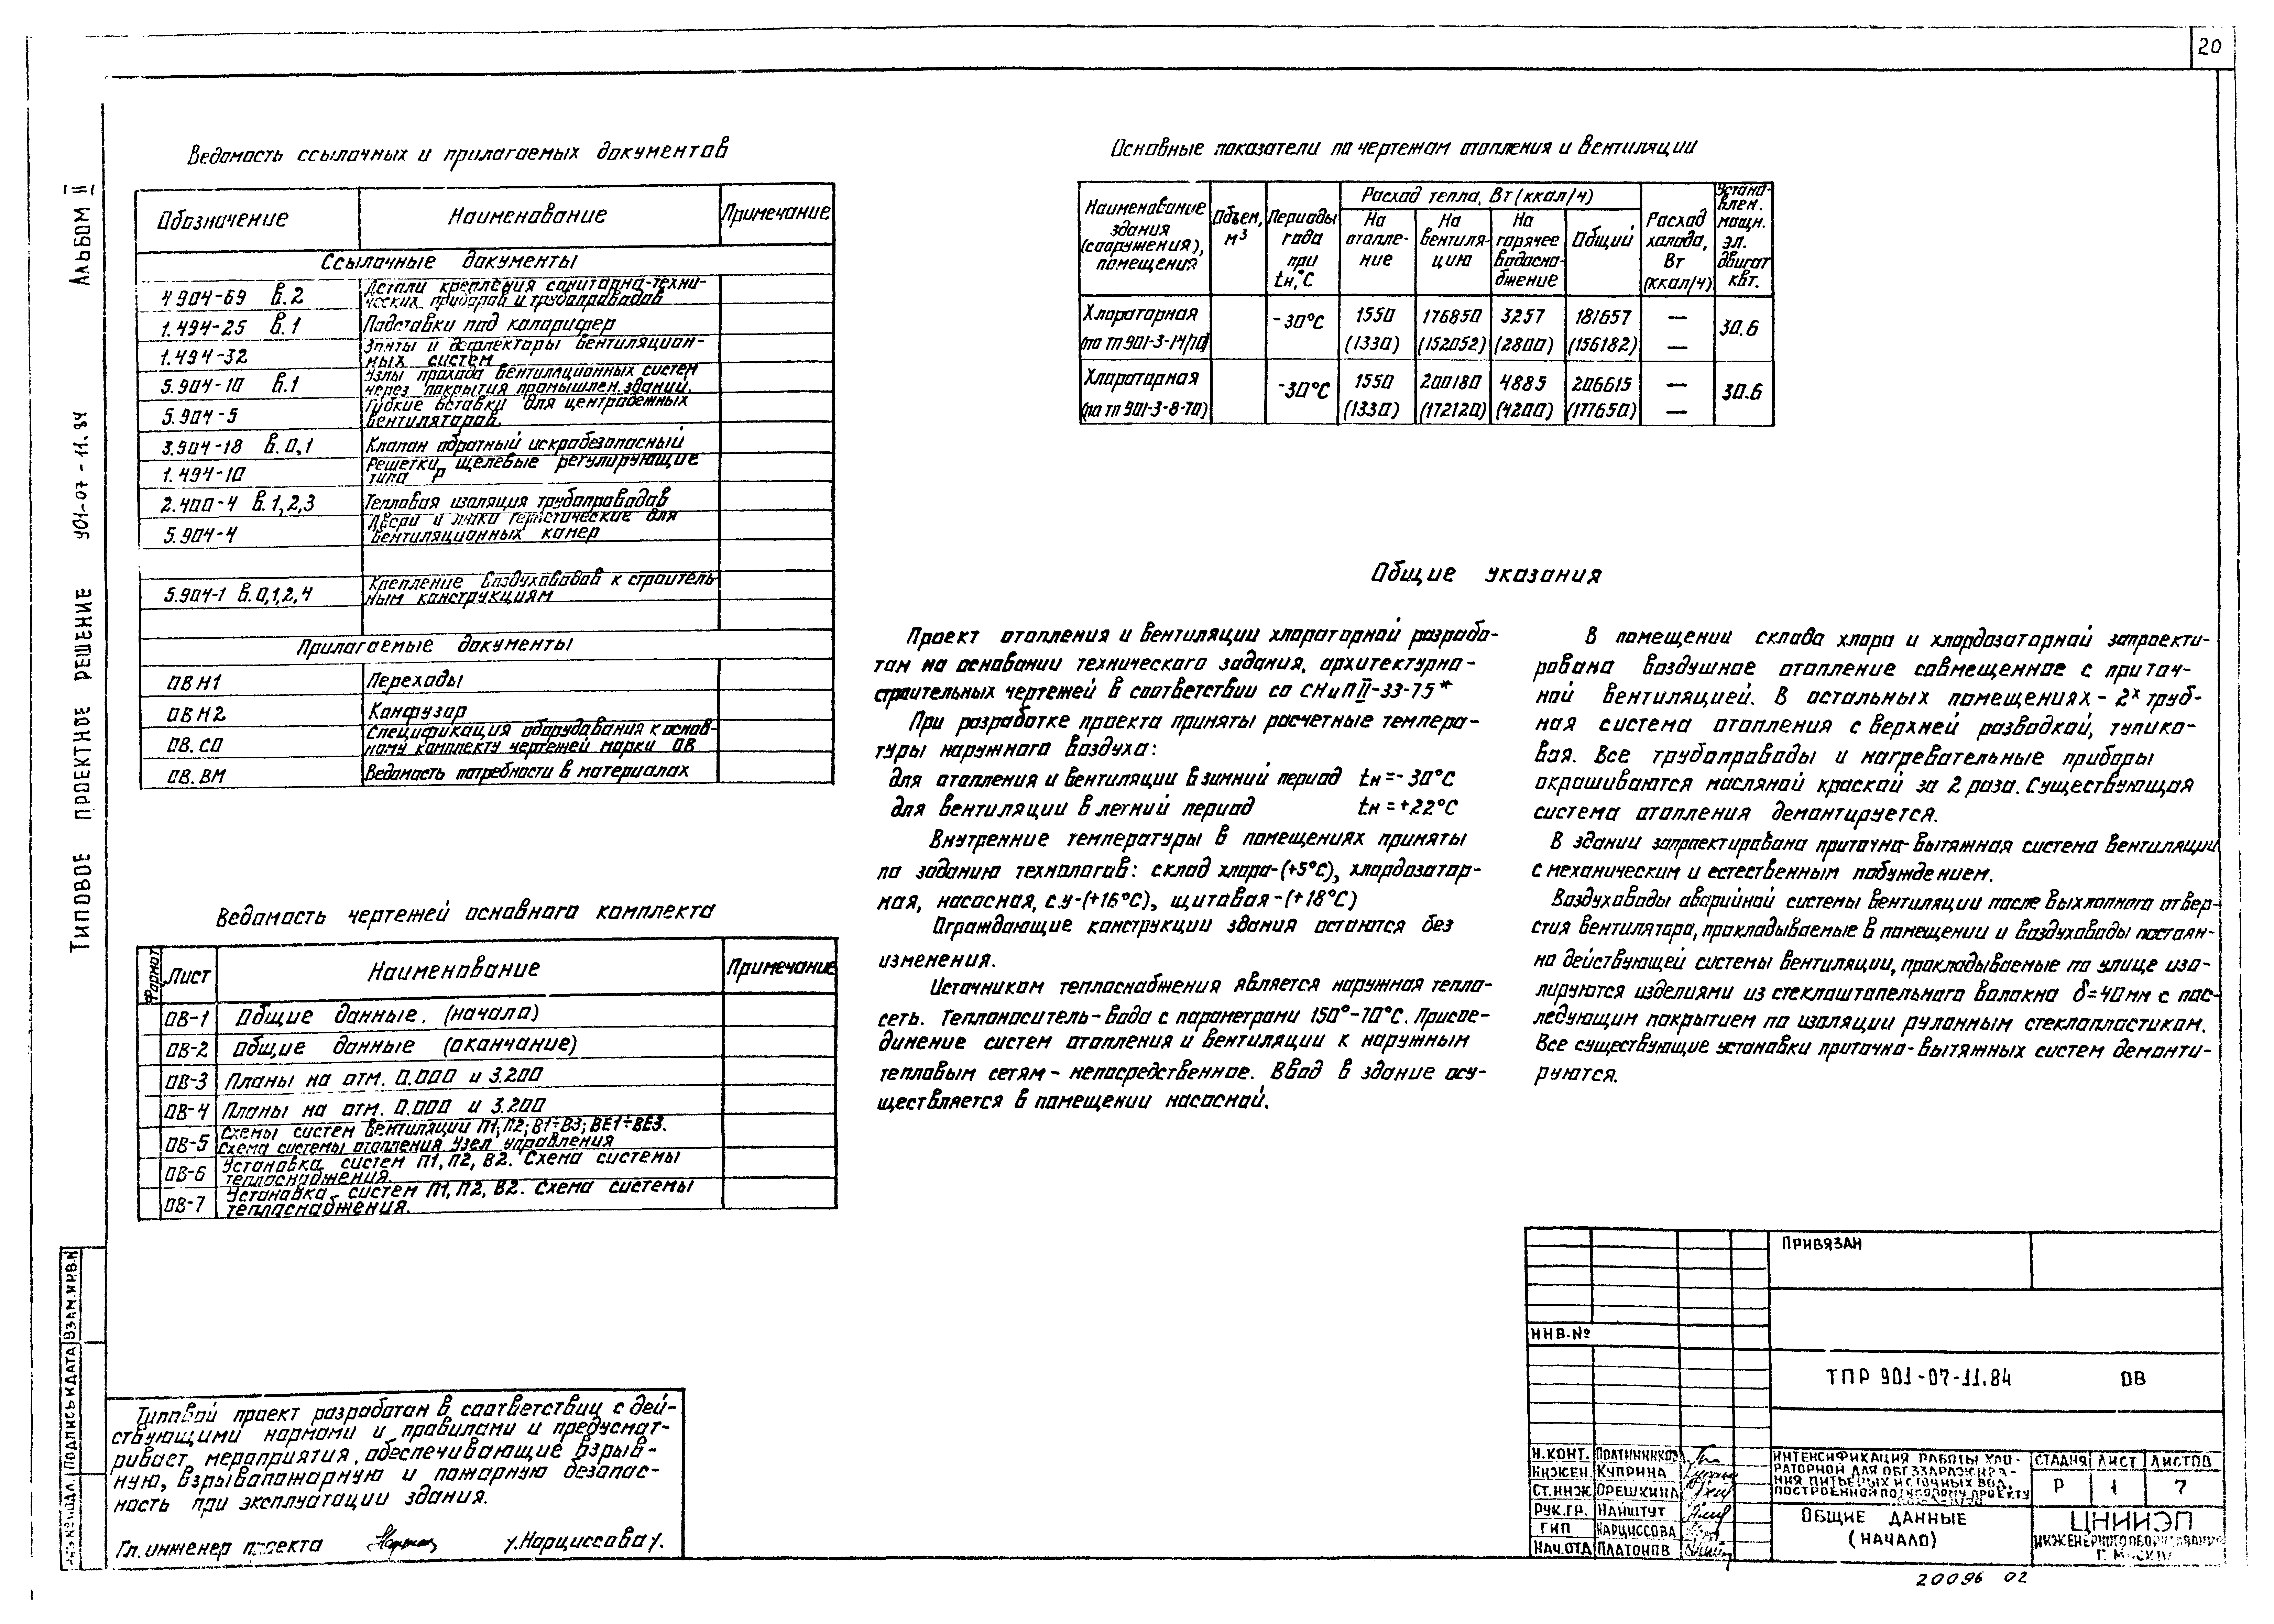 20
Альбом III
ТИПОВОЕ ПРОЕКТНОЕ РЕШЕНИЕ 901-07-11.84
Ведомость ссылочных и прилагаемых документов
Обозначение Наименование Примечание
Ссылочные документы
4.904-69 в.2 Детали крепления санитарно-техни-
ческих приборов и трубопроводов
1.494-25 в.1 Подставки под калорифер
1.494-32 Зонты и дефлекторы вентиляцион-
ных систем
5.904-10 в.1 Узлы прохода вентиляционных систем
через покрытия промышлен. зданий.
5.904-5 Гибкие вставки для центробежных
вентиляторов.
3.904-18 в.0,1 Клапан обратный искробезопасный
1.494-10 Решетки щелевые регулирующие
типа Р
2.400-4 в.1,2,3 Тепловая изоляция трубопроводов
5.904-4 Двери и люки герметические для
вентиляционных камер
5.904-1 в.0,1,2,4 Крепление воздуховодов к строитель
ным конструкциям
Прилагаемые документы
ОВН1 Переходы
ОВН2 Конфузор
ОВ.СО Спецификация оборудования к основ-
ному комплекту чертежей марки ОВ
ОВ.ВМ Ведомость потребности в материалах
Ведомость чертежей основного комплекта
Формат Лист Наименование Примечание
ОВ-1 Общие данные. (начало)
ОВ-2 Общие данные (окончание)
ОВ-3 Планы на отм. 0.000 и 3.200
ОВ-4 Планы на отм. 0.000 и 3.200
ОВ-5 Схемы систем вентиляции П1,П2; В1÷В3; ВЕ1÷ВЕ3.
Схема системы отопления. Узел управления
ОВ-6 Установка систем П1, П2, В2. Схема системы
теплоснабжения
ОВ-7 Установка систем П1, П2, В2. Схема системы
теплоснабжения.
Типовой проект разработан в соответствии с дей-
ствующими нормами и правилами и предусмат-
ривает мероприятия, обеспечивающие взрыв-
ную, взрывопожарную и пожарную безопас-
ность при эксплуатации здания.
Гл. инженер проекта /Нарциссова/.
Основные показатели по чертежам отопления и вентиляции
Наименование здания (сооружения), помещения Объем, м3 Периоды года при tн,°С Расход тепла, Вт (ккал/ч) Расход холода, Вт (ккал/ч) Устано-влен. мощн. эл. двигат квт.
На отопле-ние На вентиля-цию На горячее водосна-бжение Общий
Хлораторная -30°С 1550 176850 3257 181657 — 30.6
(по тп 901-3-14/70) (1330) (152052) (2800) (156182) —
Хлораторная -30°С 1550 200180 4885 206615 — 30.6
(по тп 901-3-8-70) (1330) (172120) (4200) (177650) —
Общие указания
Проект отопления и вентиляции хлораторной разрабо-
тан на основании технического задания, архитектурно-
строительных чертежей в соответствии со СНиП II-33-75*
При разработке проекта приняты расчетные темпера-
туры наружного воздуха:
для отопления и вентиляции в зимний период tн=-30°С
для вентиляции в летний период tн=+22°С
Внутренние температуры в помещениях приняты
по заданию технологов: склад хлора-(+5°С), хлордозатор-
ная, насосная, с.у-(+16°С), щитовая-(+18°С)
Ограждающие конструкции здания остаются без
изменения.
Источником теплоснабжения является наружная тепло-
сеть. Теплоноситель-вода с параметрами 150°-70°С. Присое-
динение систем отопления и вентиляции к наружным
тепловым сетям - непосредственное. Ввод в здание осу-
ществляется в помещении насосной.
В помещении склада хлора и хлордозаторной запроекти-
рована воздушное отопление совмещенное с приточ-
ной вентиляцией. В остальных помещениях - 2х труб-
ная система отопления с верхней разводкой, тупико-
вая. Все трубопроводы и нагревательные приборы
окрашиваются масляной краской за 2 раза. Существующая
система отопления демонтируется.
В здании запроектирована приточно-вытяжная система вентиляции
с механическим и естественным побуждением.
Воздуховоды аварийной системы вентиляции после выхлопного отвер-
стия вентилятора, прокладываемые в помещении и воздуховоды постоян-
но действующей системы вентиляции, прокладываемые по улице изо-
лируются изделиями из стеклоштапельного волокна δ=40мм с пос-
ледующим покрытием по изоляции рулонным стеклопластиком.
Все существующие установки приточно-вытяжных систем демонти-
руются.
ПРИВЯЗАН
ИНВ.№
ТПР 901-07-11.84 ОВ
Н.КОНТ. ПОЛТИННИКОВ
ИНЖЕН. КУПРИНА
СТ.ИНЖ ОРЕШКИНА
РУК.ГР. НАЙШТУТ
ГИП НАРЦИССОВА
НАЧ.ОТД ПЛАТОНОВ
ИНТЕНСИФИКАЦИЯ РАБОТЫ ХЛО-
РАТОРНОЙ ДЛЯ ОБЕЗЗАРАЖИВА-
НИЯ ПИТЬЕВЫХ И СТОЧНЫХ ВОД,
ПОСТРОЕННОЙ ПО ТИПОВОМУ ПРОЕКТУ
СТАДИЯ ЛИСТ ЛИСТОВ
Р 1 7
ОБЩИЕ ДАННЫЕ
(НАЧАЛО)
ЦНИИЭП
ИНЖЕНЕРНОГО ОБОРУДОВАНИЯ
Г. МОСКВА
ПОДПИСЬ И ДАТА ВЗАМ.ИНВ.N
20096 02